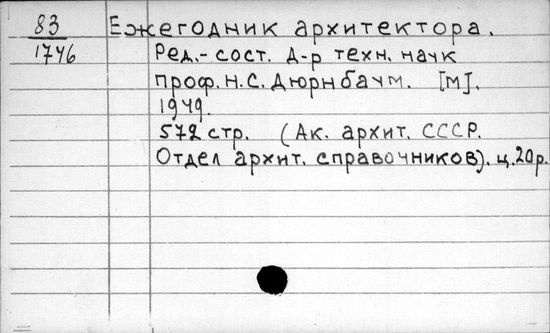 83 Ежегодник архитектора.
1746 Ред.-сост. д-р техн. наук
проф. Н.С. Дюрнбаум. [М].
1949.
572 стр. (Ак. архит. СССР.
Отдел архит. справочников). ц. 20р.